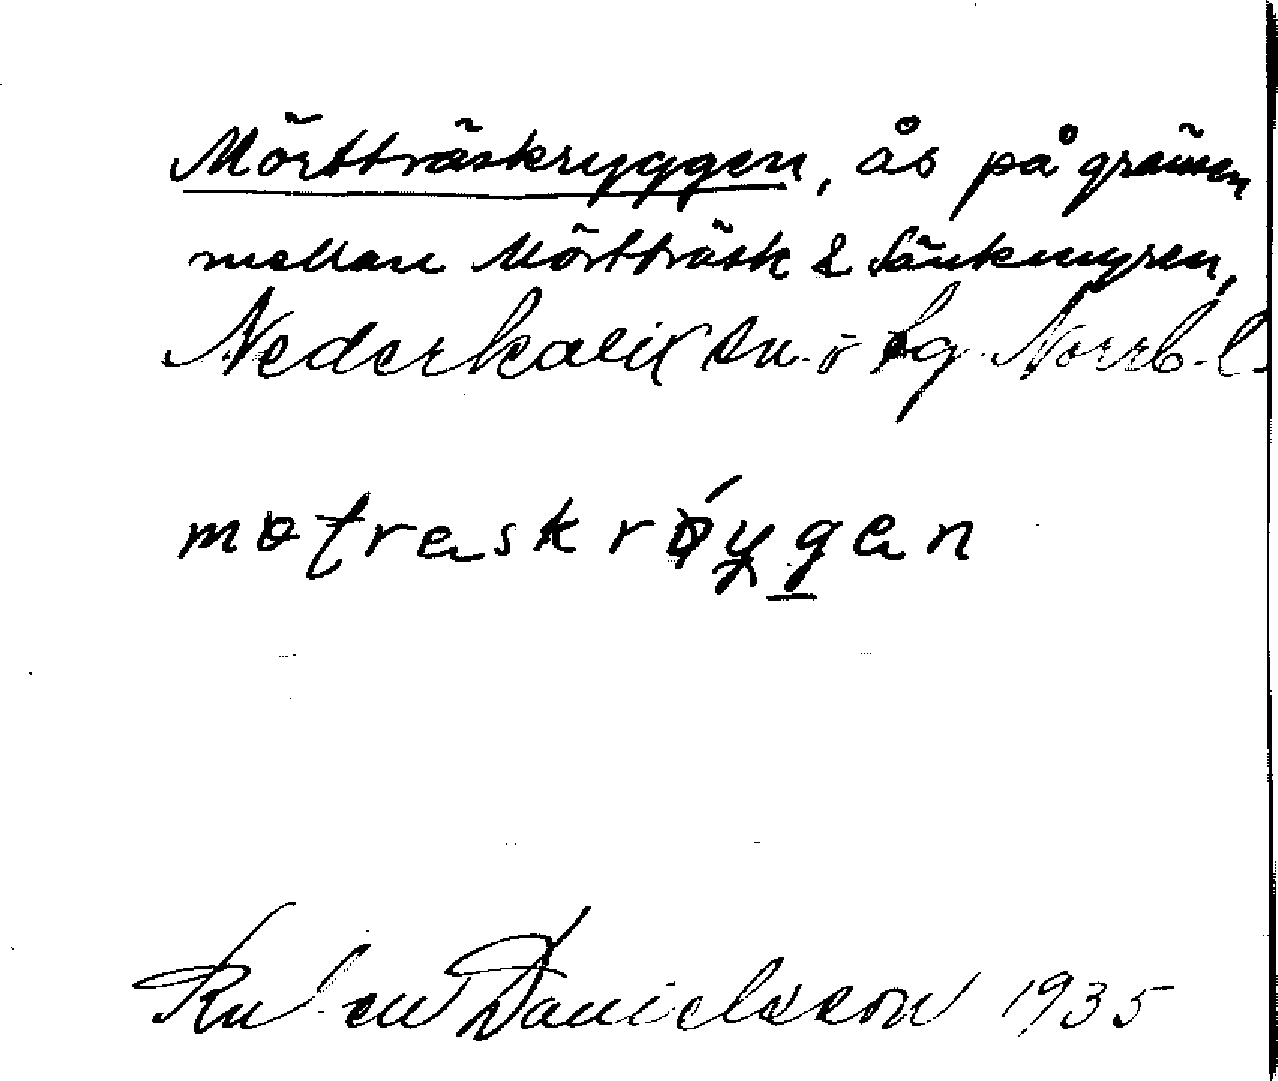 Mörtträskryggen, ås på gränsen
mellan Mörtträsk & Sänkmyren,
Nederkalix sn o tg. Norrb. l.
motræskrøygen
Ruben Danielsson 1935